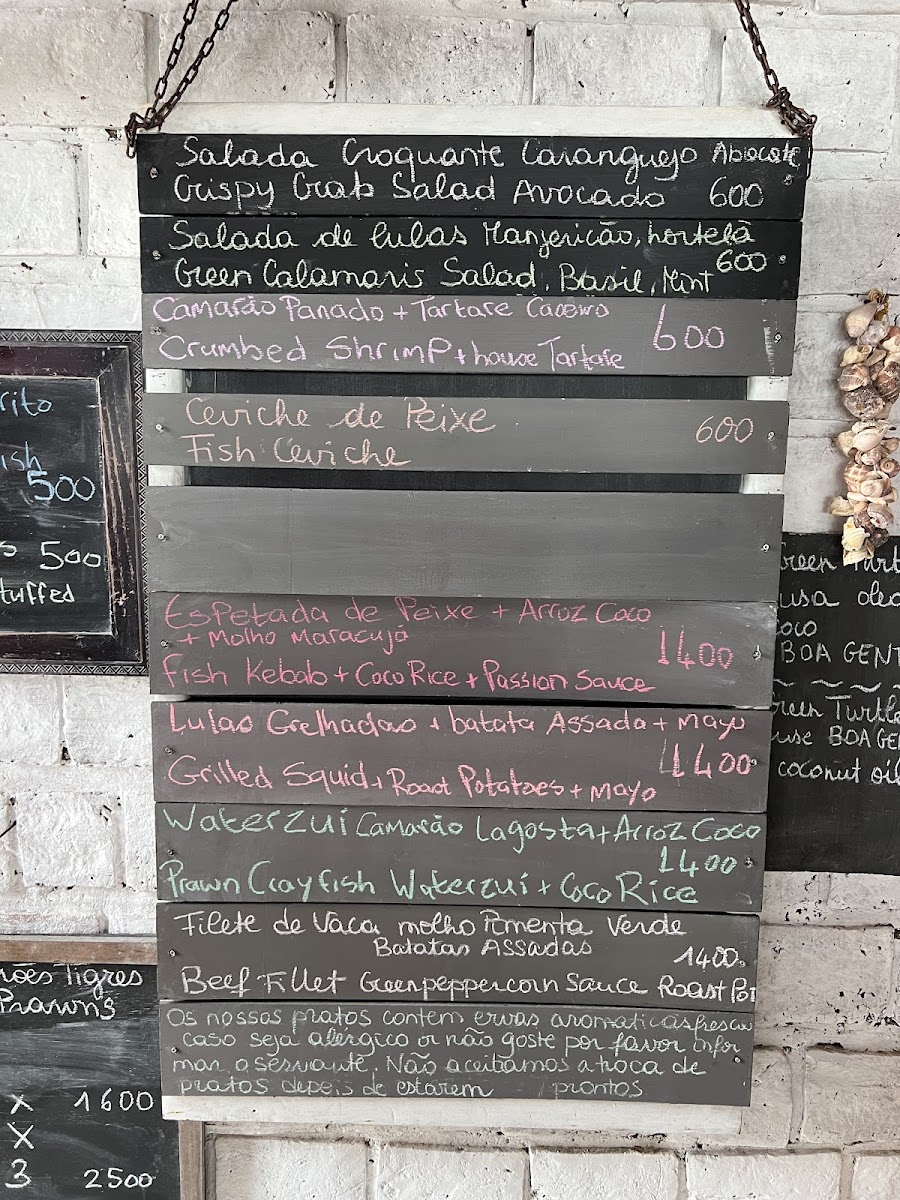 Salada Croquante Caranguejo Abacate
Crispy Crab Salad Avocado 600
Salada de lulas Manjericão, hortelã
600
Green Calamaris Salad, Basil, Mint
Camarão Panado + Tartare Caseiro
600
Crumbed Shrimp + house Tartare
Ceviche de Peixe
600
Fish Ceviche
Espetada de Peixe + Arroz Coco
+ Molho Maracujá
1400
Fish Kebab + Coco Rice + Passion Sauce
Lulas Grelhadas + batata Assada + Mayo
1400
Grilled Squid + Roast Potatoes + Mayo
Waterzuí Camarão Lagosta + Arroz Coco
1400
Prawn Crayfish Waterzuí + Coco Rice
Filete de Vaca molho Pimenta Verde
Batatas Assadas
1400
Beef Fillet Greenpeppercorn Sauce Roast Pot
Os nossos pratos contem ervas aromaticas frescas
caso seja alérgico or não goste por favor infor
mar o servante. Não aceitamos a troca de
pratos depois de estarem prontos
rito
ish
500
s 500
tuffed
rões tigres
Prawns
x 1600
X
3 2500
reen Turt
usa oleo
oco
BOA GENT
reen Turtle
use BOA GE
coconut oil